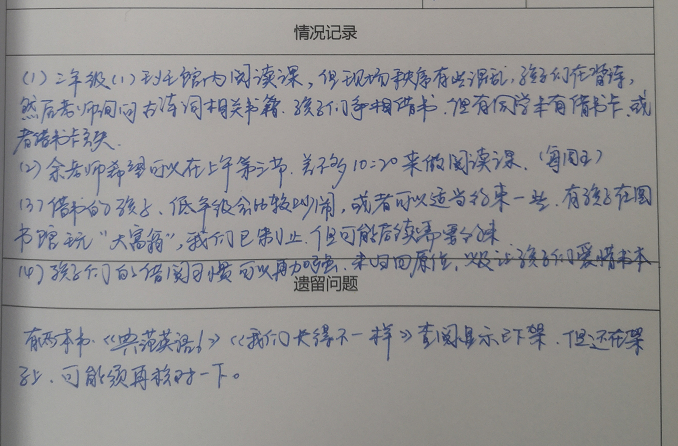 情况记录
(1) 三年级(1)班在馆内阅读课,但现场秩序有些混乱,孩子们在背诗,
然后老师询问古诗词相关书籍,孩子们争相借书,但有同学未有借书卡,或
者借书卡丢失.
(2) 余老师希望可以在上午第三节,差不多10:20来做阅读课.(每周五)
(3) 借书的孩子,低年级会比较吵闹,或者可以适当约束一些,有孩子在图
书馆玩“大富翁”,我们已制止.但可能后续需要约束
(4) 孩子们的借阅习惯可以再加强,未归回原位,以及让孩子们爱惜书本
遗留问题
有两本书《典范英语6》《我们长得不一样》查阅显示已下架,但还在架
子上,可能须再核对一下。